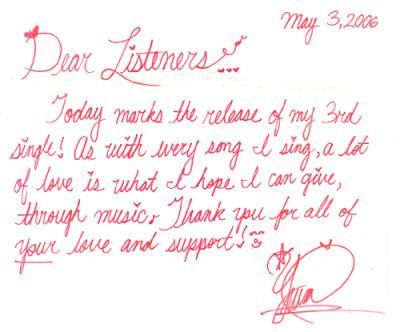 May 3, 2006
Dear Listeners...
Today marks the release of my 3rd
single! As with every song I sing, a lot
of love is what I hope I can give,
through music. Thank you for all of
your love and support!